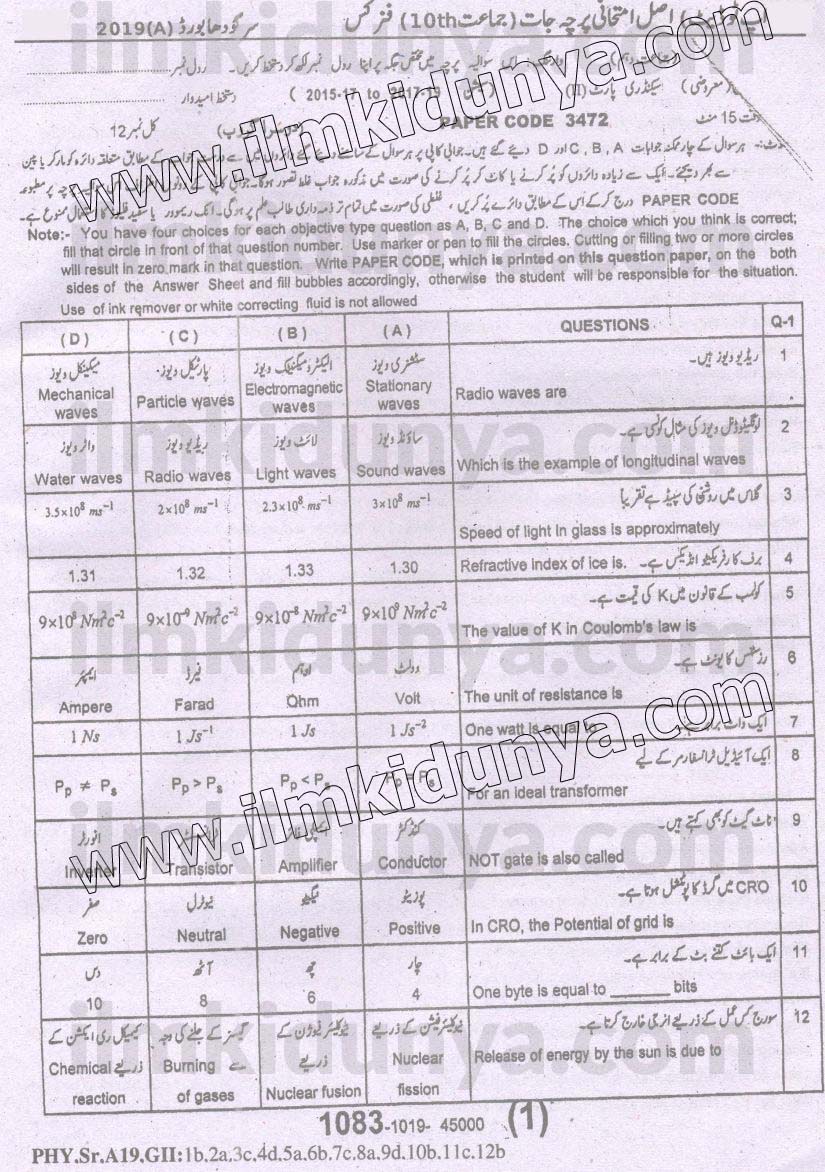 اپ ٹو ڈیٹ) اصل امتحانی پرچہ جات (جماعت 10th) فزکس سرگودھا بورڈ 2019(A)
پرچہ میں مختص جگہ پر اپنا رول نمبر لکھ کر دستخط کریں۔ رول نمبر
(معروضی) سیکنڈری پارٹ (II) (سیشن 2015-17 to 2017-19) دستخط امیدوار
وقت 15 منٹ PAPER CODE 3472 کل نمبر 12
نوٹ:- ہر سوال کے چار ممکنہ جوابات C, B, A اور D دیئے گئے ہیں۔ جوابی کاپی پر ہر سوال کے سامنے دیئے گئے دائروں میں سے درست جواب کے مطابق متعلقہ دائرہ کو مارکر یا پین
سے بھر دیجئے۔ ایک سے زیادہ دائروں کو پُر کرنے یا کاٹ کر پُر کرنے کی صورت میں مذکورہ جواب غلط تصور ہوگا۔ پرچہ پر مطبوعہ
PAPER CODE درج کر کے اس کے مطابق دائرے پُر کریں، غلطی کی صورت میں تمام تر ذمہ داری طالب علم پر ہوگی۔ انک ریموور یا سفید فلیوڈ کا استعمال ممنوع ہے۔
Note:- You have four choices for each objective type question as A, B, C and D. The choice which you think is correct;
fill that circle in front of that question number. Use marker or pen to fill the circles. Cutting or filling two or more circles
will result in zero mark in that question. Write PAPER CODE, which is printed on this question paper, on the both
sides of the Answer Sheet and fill bubbles accordingly, otherwise the student will be responsible for the situation.
Use of ink remover or white correcting fluid is not allowed
(D) (C) (B) (A) QUESTIONS Q-1
میکینیکل ویوز پارٹیکل ویوز الیکٹرومیگنیٹک ویوز سٹیشنری ویوز ریڈیو ویوز ہیں۔ 1
Mechanical waves Particle waves Electromagnetic waves Stationary waves Radio waves are
واٹر ویوز ریڈیو ویوز لائٹ ویوز ساؤنڈ ویوز لونگیٹیوڈنل ویوز کی مثال کونسی ہے۔ 2
Water waves Radio waves Light waves Sound waves Which is the example of longitudinal waves
گلاس میں روشنی کی سپیڈ ہے تقریباً 3
3.5×10⁸ ms⁻¹ 2×10⁸ ms⁻¹ 2.3×10⁸ ms⁻¹ 3×10⁸ ms⁻¹ Speed of light in glass is approximately
1.31 1.32 1.33 1.30 Refractive index of ice is. برف کا رفریکٹو انڈیکس ہے۔ 4
کولمب کے قانون میں K کی قیمت ہے۔ 5
9×10⁹ Nm²c⁻² 9×10⁻⁹ Nm²c⁻² 9×10⁻⁸ Nm²c⁻² 9×10⁹ Nm²c⁻² The value of K in Coulomb's law is
ایمپئر فیرڈ اوہم وولٹ رزسٹنس کا یونٹ ہے۔ 6
Ampere Farad Ohm Volt The unit of resistance is
1 Ns 1 Js⁻¹ 1 Js 1 Js⁻² One watt is equal to ایک واٹ برابر ہے 7
ایک آئیڈیل ٹرانسفارمر کے لیے 8
Pp ≠ Ps Pp > Ps Pp < Ps Pp = Ps For an ideal transformer
انورٹر کنڈکٹر ناٹ گیٹ کو بھی کہتے ہیں۔ 9
Inverter Transistor Amplifier Conductor NOT gate is also called
صفر نیوٹرل نیگیٹو پوزیٹو CRO میں گرڈ کا پوٹینشل ہوتا ہے۔ 10
Zero Neutral Negative Positive In CRO, the Potential of grid is
دس آٹھ چھ چار ایک بائٹ کتنے بٹ کے برابر ہے۔ 11
10 8 6 4 One byte is equal to ______ bits
کیمیکل ری ایکشن کے ذریعے گیسز کے جلنے کی وجہ سے نیوکلیئر فیوژن کے ذریعے نیوکلیئر فشن کے ذریعے سورج کس عمل کے ذریعے انرجی خارج کرتا ہے۔ 12
Chemical reaction Burning of gases Nuclear fusion Nuclear fission Release of energy by the sun is due to
1083-1019- 45000 (1)
PHY.Sr.A19.GII:1b,2a,3c,4d,5a,6b,7c,8a,9d,10b,11c,12b
www.ilmkidunya.com
www.ilmkidunya.com
ilmkidunya.com
ilmkidunya.com
ilmkidunya.com
ilmkidunya.com
ilmkidunya.com